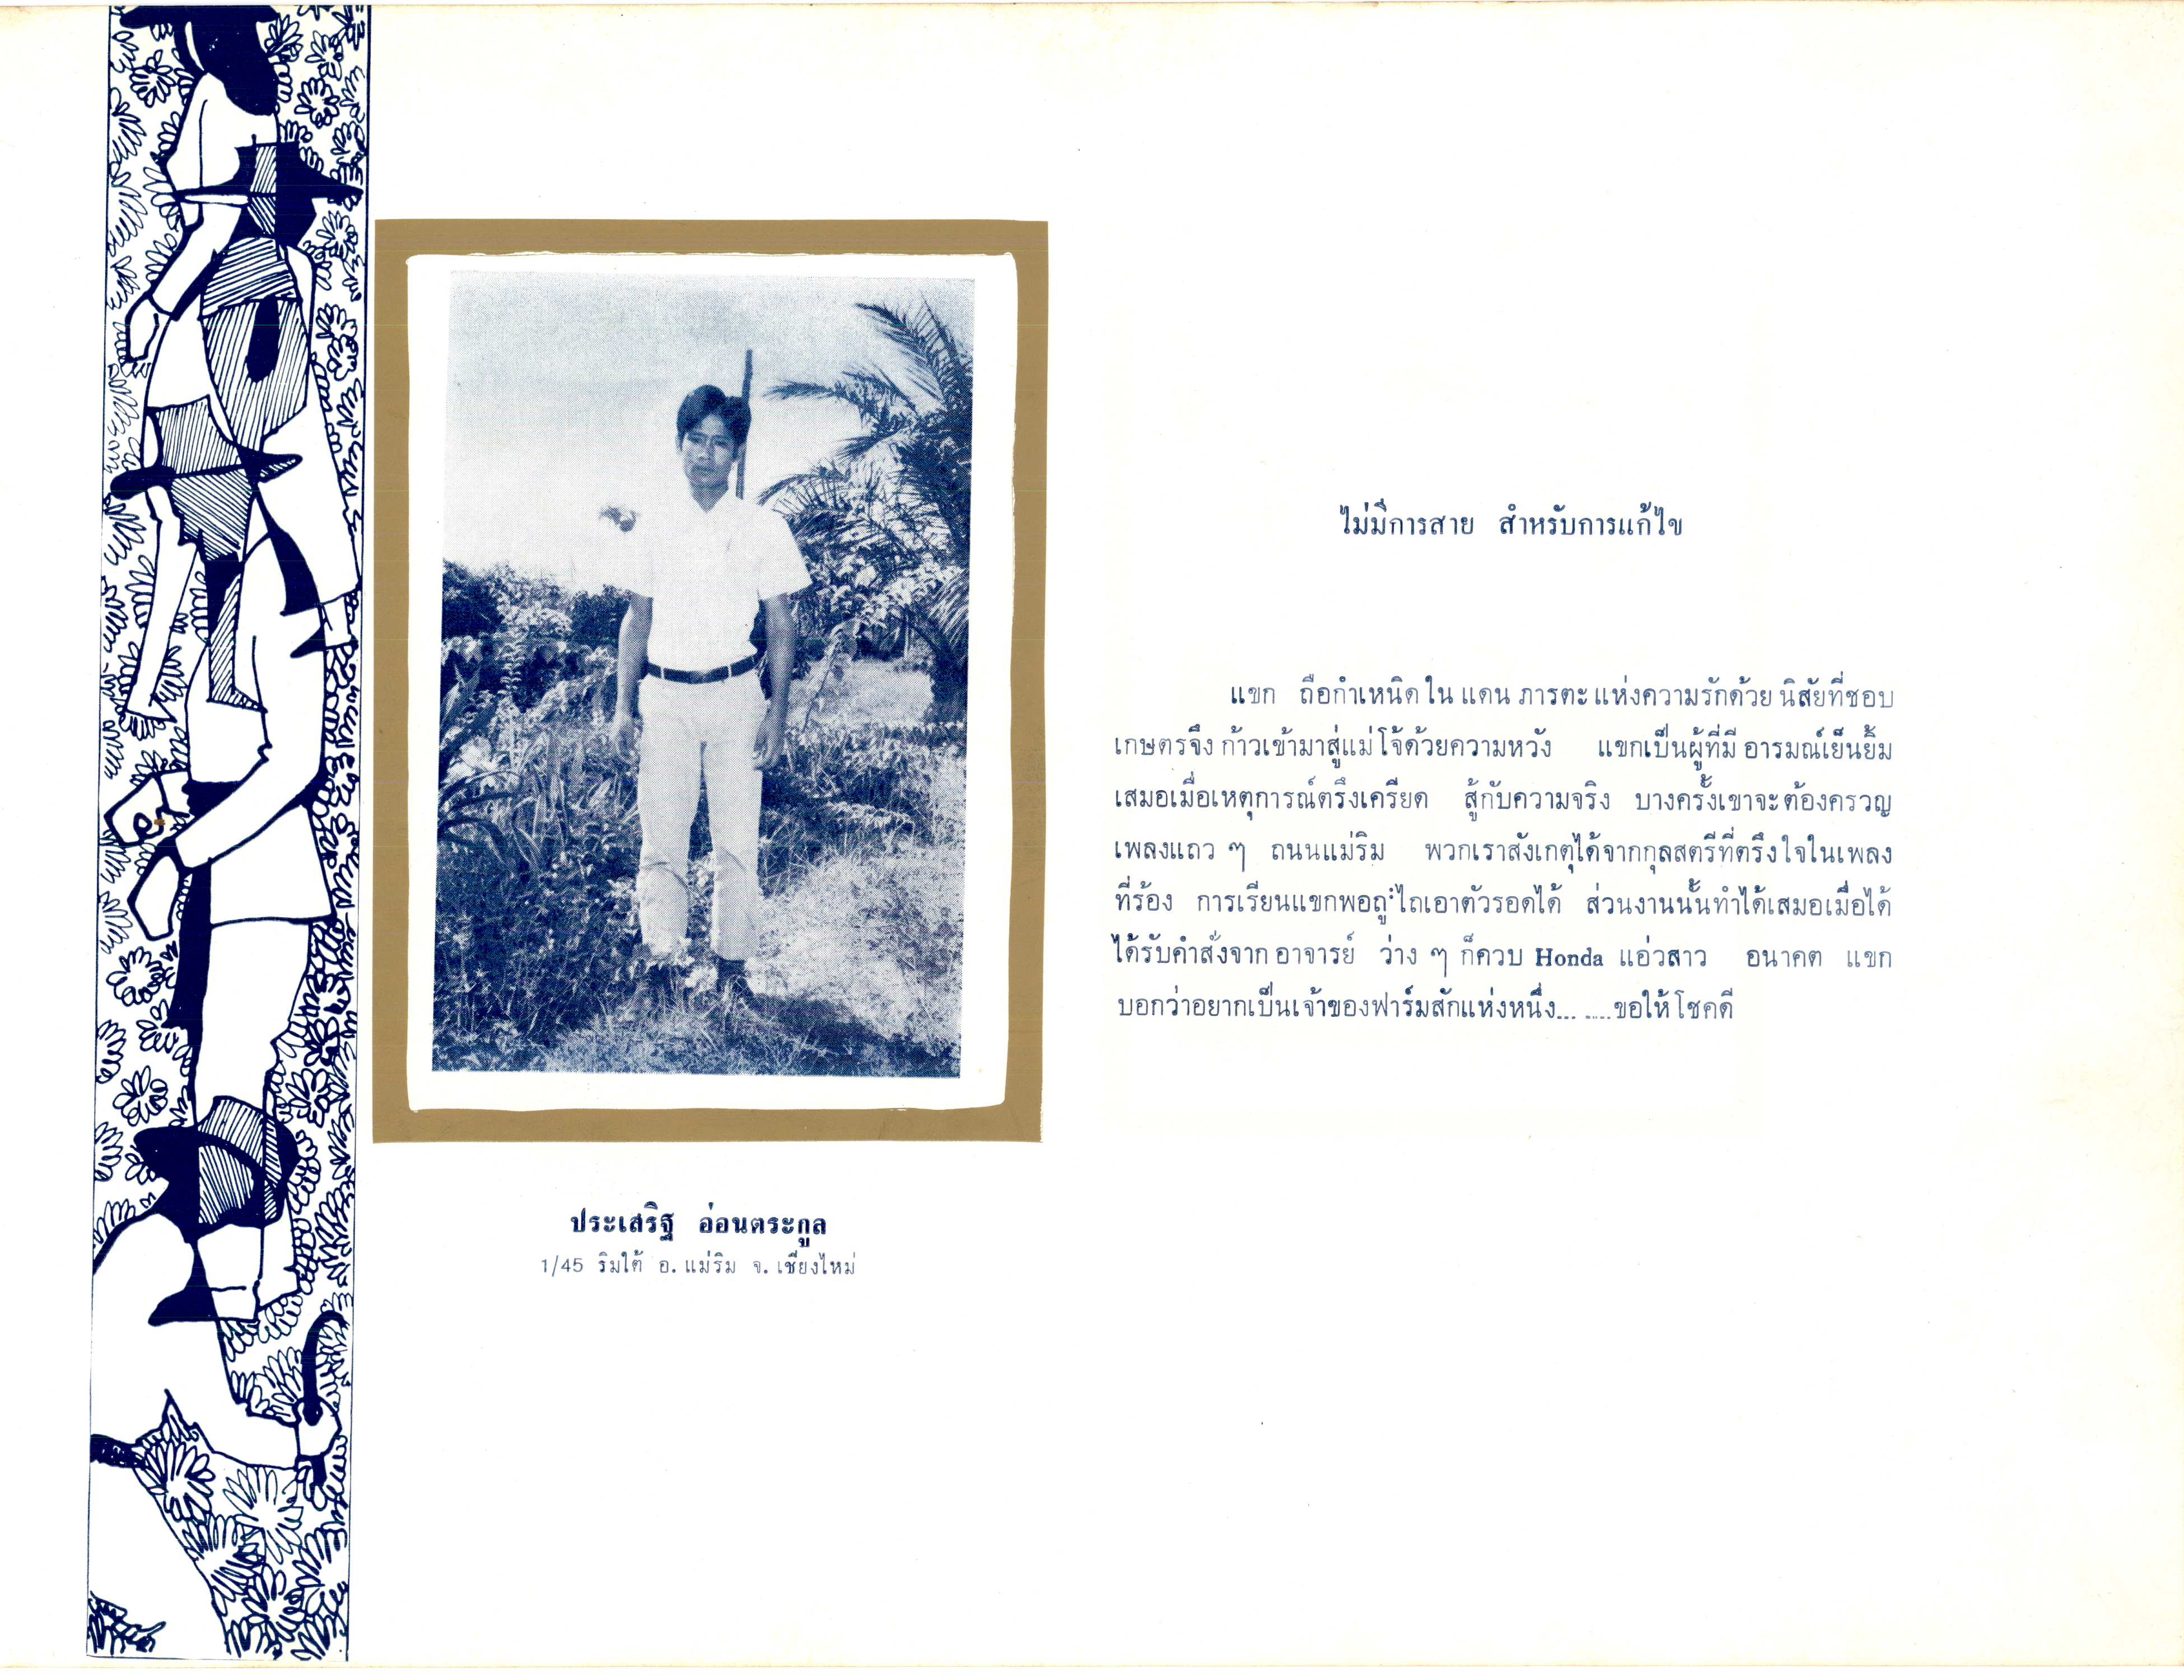 ไม่มีการสาย สำหรับการแก้ไข
แขก ถือกำเหนิดใน แดน ภารตะ แห่งความรักด้วย นิสัยที่ชอบ
เกษตรจึง ก้าวเข้ามาสู่แม่โจ้ด้วยความหวัง แขกเป็นผู้ที่มี อารมณ์เย็นยิ้ม
เสมอเมื่อเหตุการณ์ตรึงเครียด สู้กับความจริง บางครั้งเขาจะต้องครวญ
เพลงแถว ๆ ถนนแม่ริม พวกเราสังเกตุได้จากกุลสตรีที่ตรึงใจในเพลง
ที่ร้อง การเรียนแขกพอถูไถเอาตัวรอดได้ ส่วนงานนั้นทำได้เสมอเมื่อได้
ได้รับคำสั่งจาก อาจารย์ ว่าง ๆ ก็ควบ Honda แอ่วสาว อนาคต แขก
บอกว่าอยากเป็นเจ้าของฟาร์มสักแห่งหนึ่ง... ....ขอให้โชคดี
ประเสริฐ อ่อนตระกูล
1/45 ริมใต้ อ. แม่ริม จ. เชียงใหม่